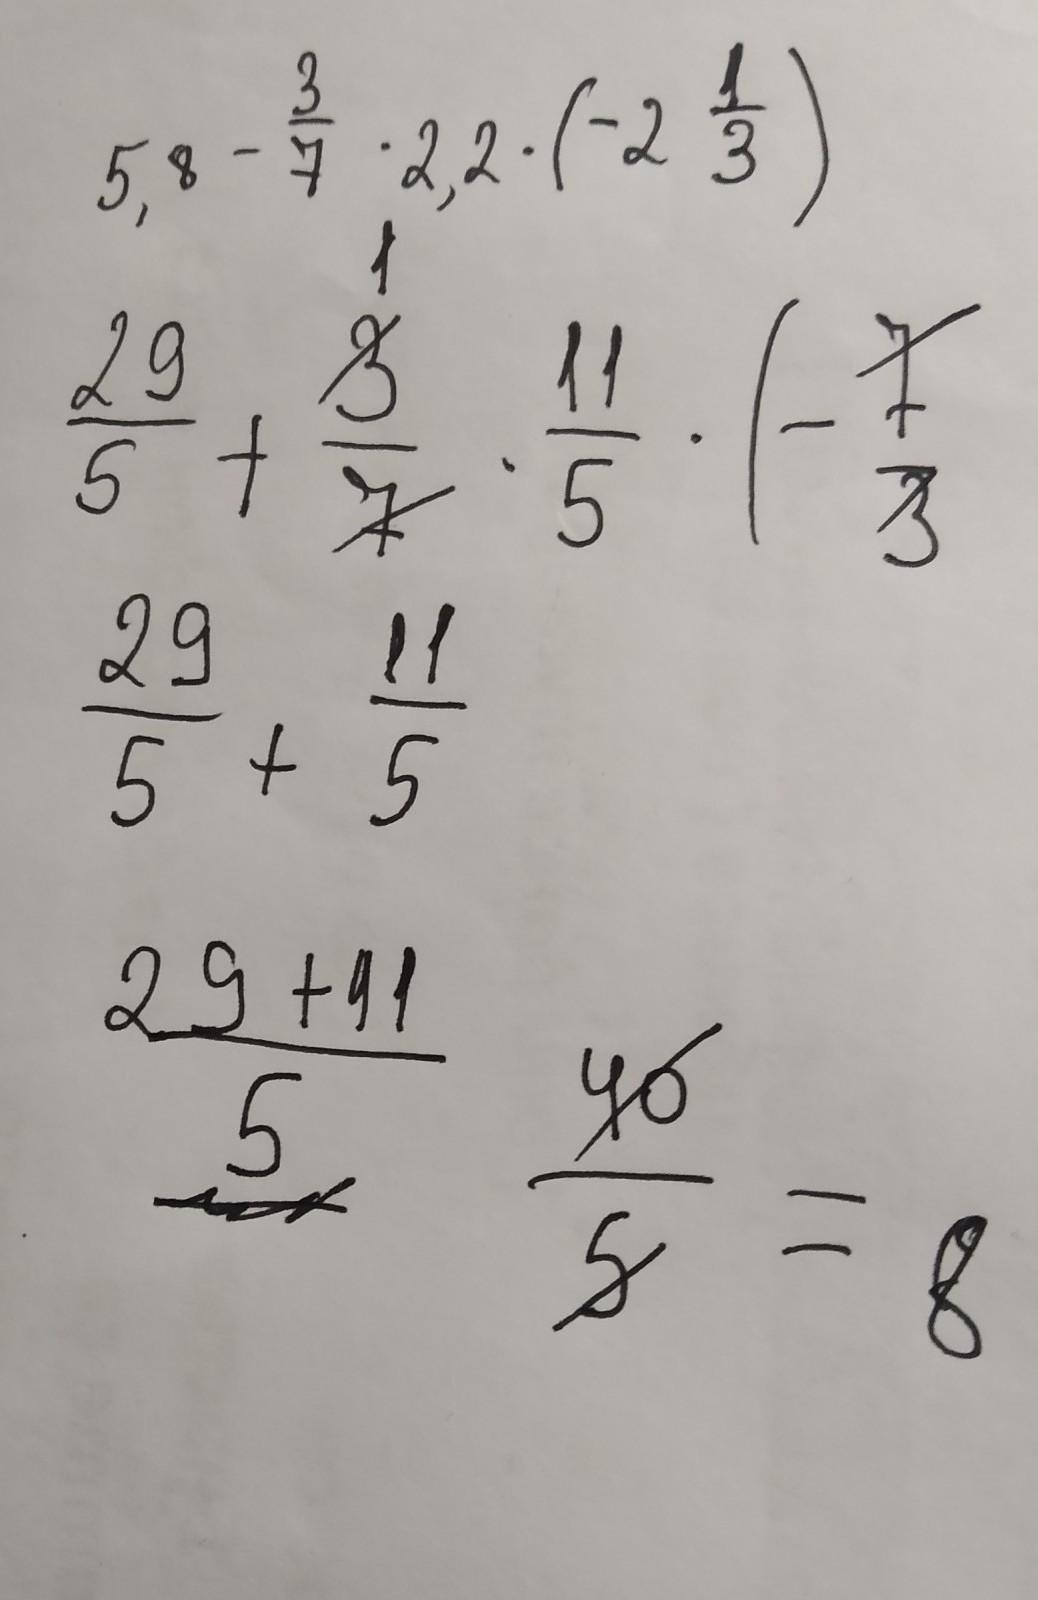 5,8 - 3/7 · 2,2 · (-2 1/3)
1
29/5 + 3/7 · 11/5 · (- 7/3
29/5 + 11/5
29+11/5 40/5 = 8